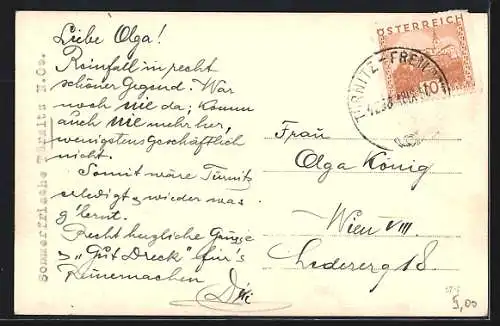 Sommerfrische Türnitz N.Oe.
Liebe Olga!
Reinfall in recht
schöner Gegend. War
noch nie da; komm
auch nie mehr her,
wenigstens geschäftlich
nicht.
Somit wäre Türnitz
erledigt & wieder was
g'lernt.
Recht herzliche Grüsse
& "Gut Dreck" für's
Reinemachen
ÖSTERREICH
10
TÜRNITZ-
Frau
Olga König
Wien VIII
Ledererg 18.
5,00